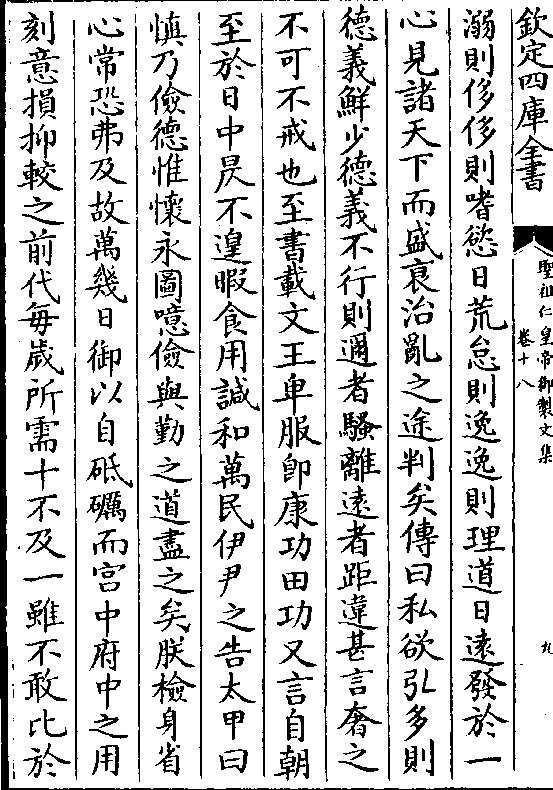 欽定四庫全書
聖祖仁皇帝御製文集
卷十八
九
溺則侈侈則嗜慾日荒怠則逸逸則理道日遠發於一
心見諸天下而盛衰治亂之途判矣傳曰私欲弘多則
德義鮮少德義不行則邇者騷離遠者距違甚言奢之
不可不戒也至書載文王卑服卽康功田功又言自朝
至於日中昃不遑暇食用諴和萬民伊尹之告太甲曰
慎乃儉德惟懷永圖噫儉與勤之道盡之矣朕檢身省
心常恐弗及故萬幾日御以自砥礪而宫中府中之用
刻意損抑較之前代毎歲所需十不及一雖不敢比於